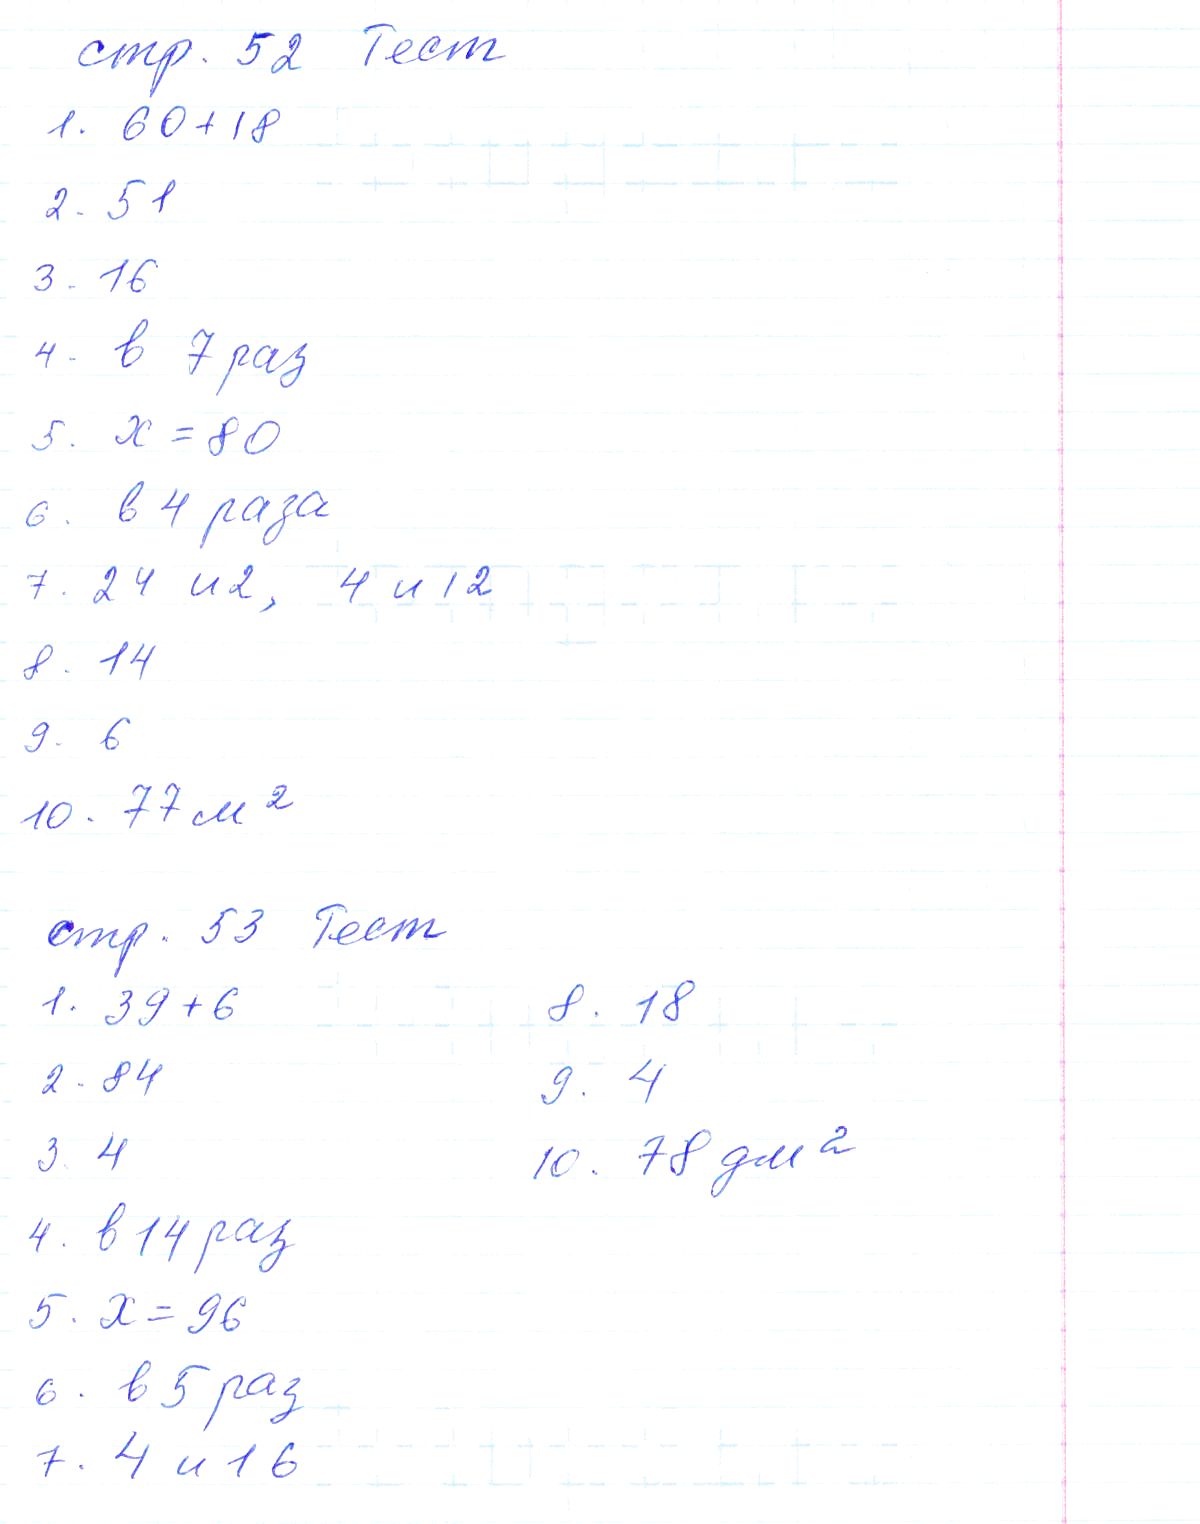 стр. 52 Тест
1. 60+18
2. 51
3. 16
4. в 7 раз
5. x = 80
6. в 4 раза
7. 24 и 2, 4 и 12
8. 14
9. 6
10. 77 м²
стр. 53 Тест
1. 39+6
2. 84
3. 4
4. в 14 раз
5. x = 96
6. в 5 раз
7. 4 и 16
8. 18
9. 4
10. 78 дм²